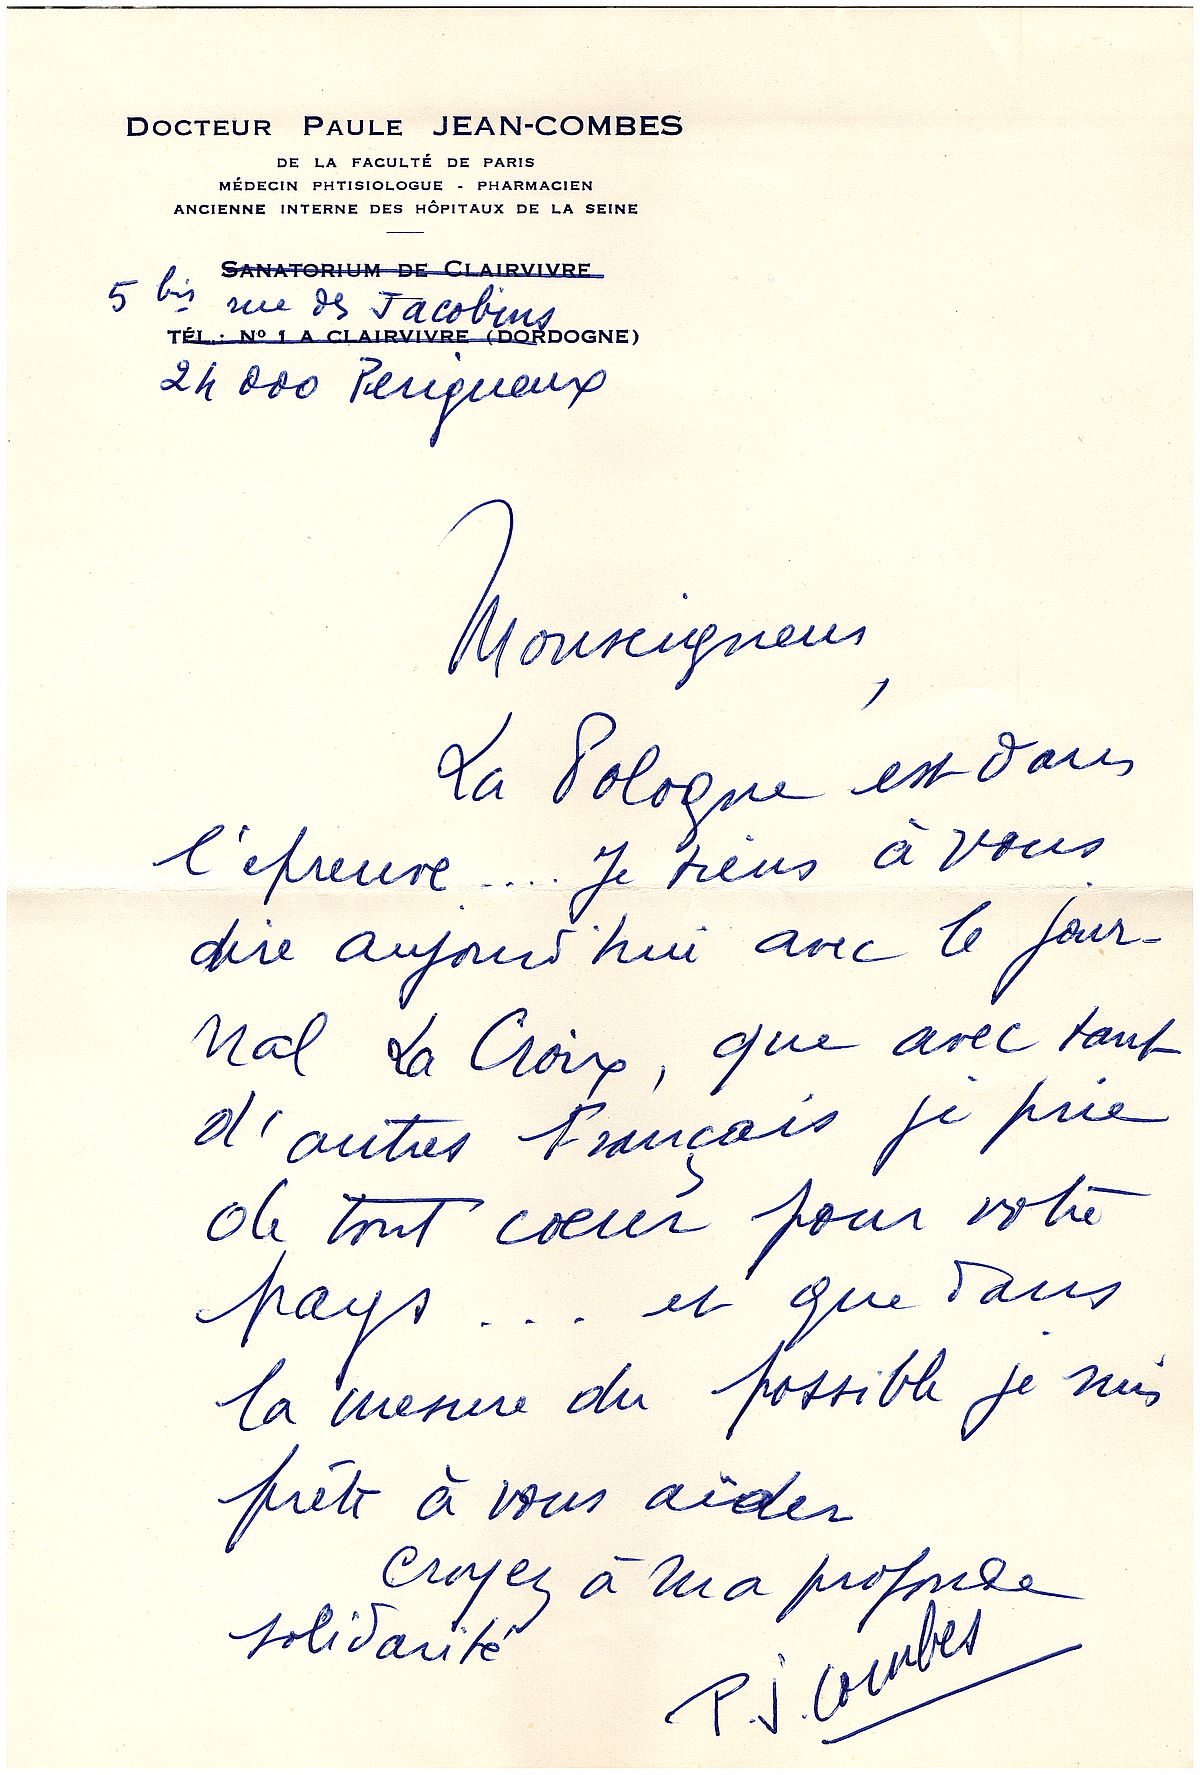 DOCTEUR PAULE JEAN-COMBES
DE LA FACULTÉ DE PARIS
MÉDECIN PHTISIOLOGUE - PHARMACIEN
ANCIENNE INTERNE DES HÔPITAUX DE LA SEINE
SANATORIUM DE CLAIRVIVRE
5 bis rue des Jacobins
TÉL.: Nº 1 A CLAIRVIVRE (DORDOGNE)
24 000 Perigueux
Monseigneur,
La Pologne est dans
l'épreuve .... Je tiens à vous
dire aujourd'hui avec le jour-
nal La Croix, que avec tant
d'autres Français je prie
de tout coeur pour votre
pays .... et que dans
la mesure du possible je suis
prête à vous aider
Croyez à ma profonde
solidarité
P.J. Combes